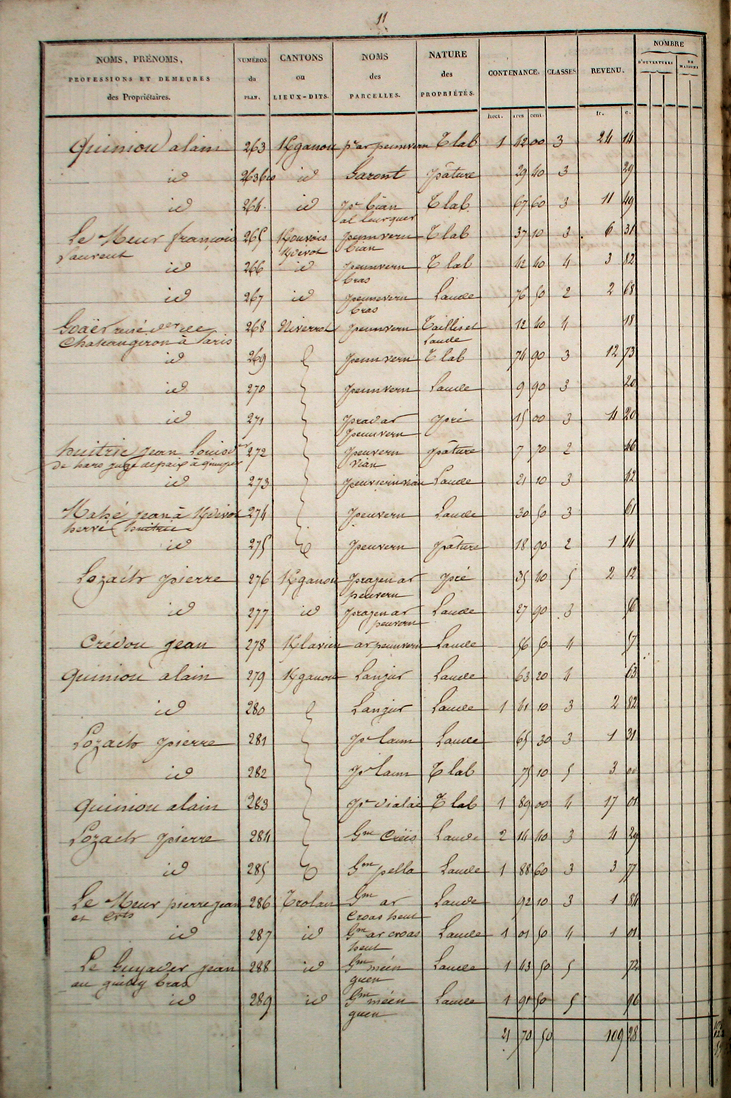 11
NOMS, PRÉNOMS, PROFESSIONS ET DEMEURES des Propriétaires. NUMÉROS du PLAN. CANTONS ou LIEUX-DITS. NOMS des PARCELLES. NATURE des PROPRIÉTÉS. CONTENANCE. CLASSES. REVENU. NOMBRE D'OUVERTURES DE MAISONS
hect. ares cent. fr. c.
Quiniou alain 263 Kganou par peunvern T lab 1 42 00 3 24 14
id 263 bis id Garont pature 29 40 3 29
id 264 id pr bian T lab 67 60 3 11 49
al leurguer
Le Meur françois 265 peunvern T lab 37 10 3 6 31
bian
id 266 id peunvern T lab 42 40 4 3 82
bras
id 267 id peunvern Lande 76 50 2 2 68
bras
268 Niverrot peunvern Taillis et 12 40 4 18
Chateaugiron à Paris Lande
id 269 peunvern T lab 74 90 3 12 73
id 270 peunvern Lande 9 90 3 20
id 271 prad ar pré 15 00 3 4 20
peunvern
huitric jean Louis 272 peuvern pature 7 70 2 46
de paix à quimper vian
id 273 Lande 21 10 3 42
jean à 274 peuvern Lande 30 50 3 61
hervé huitric
id 275 peuvern pature 18 90 2 1 14
Lozach pierre 276 Kganou prazen ar pré 35 20 5 2 12
peuvern
id 277 id prazen ar Lande 27 90 3 56
peuvern
Credou jean 278 Klavien ar peunvern Lande 56 50 4 57
Quiniou alain 279 Kganou Langur Lande 63 20 4 63
id 280 Langur Lande 1 61 10 3 2 82
Lozach pierre 281 pr laun Lande 65 30 3 1 31
id 282 pr laun T lab 75 10 5 3 00
quiniou alain 283 T lab 1 89 00 4 17 01
Lozach pierre 284 Gm Creis Lande 2 14 40 3 4 29
id 285 Gm pella Lande 1 88 60 3 3 77
Le Meur pierre jean 286 Trolan Gm ar Lande 92 10 3 1 84
et Crts croas hent
id 287 id Gm ar croas Lande 1 01 50 4 1 01
hent
Le Guyader jean 288 id Gm mein Lande 1 43 50 5 72
au guilly bras guen
id 289 id Gm mein Lande 1 91 50 5 96
guen
21 70 50 109 28